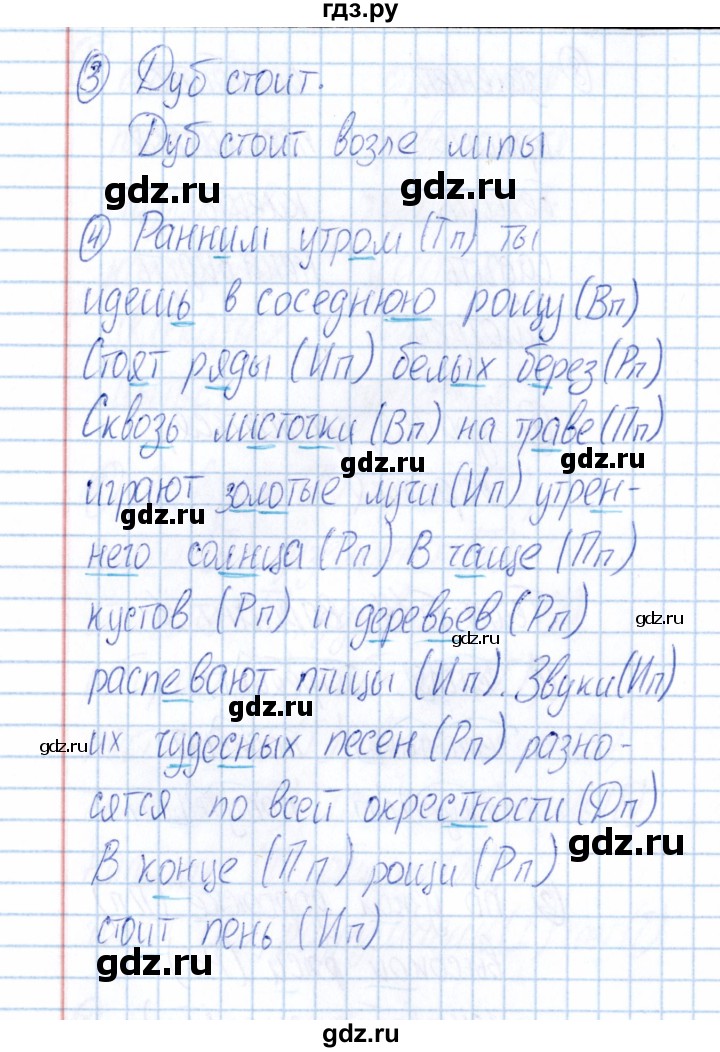 гдз.ру
③ Дуб стоит.
Дуб стоит возле липы
gdz.ru gdz.ru
④ Ранним утром (Тп) ты
идешь в соседнюю рощу (Вп)
Стоят ряды (Ип) белых берез (Рп)
Сквозь листочки (Вп) на траве (Пп)
gdz.ru gdz.ru
играют золотые лучи (Ип) утрен-
gdz.ru
него солнца (Рп) В чаще (Пп)
кустов (Рп) и деревьев (Рп)
gdz.ru gdz.ru
распевают птицы (Ип). Звуки (Ип)
gdz.ru
их чудесных песен (Рп) разно-
gdz.ru
сятся по всей окрестности (Дп)
gdz.ru
В конце (Пп) рощи (Рп)
стоит пень (Ип)
gdz.ru
gdz.ru